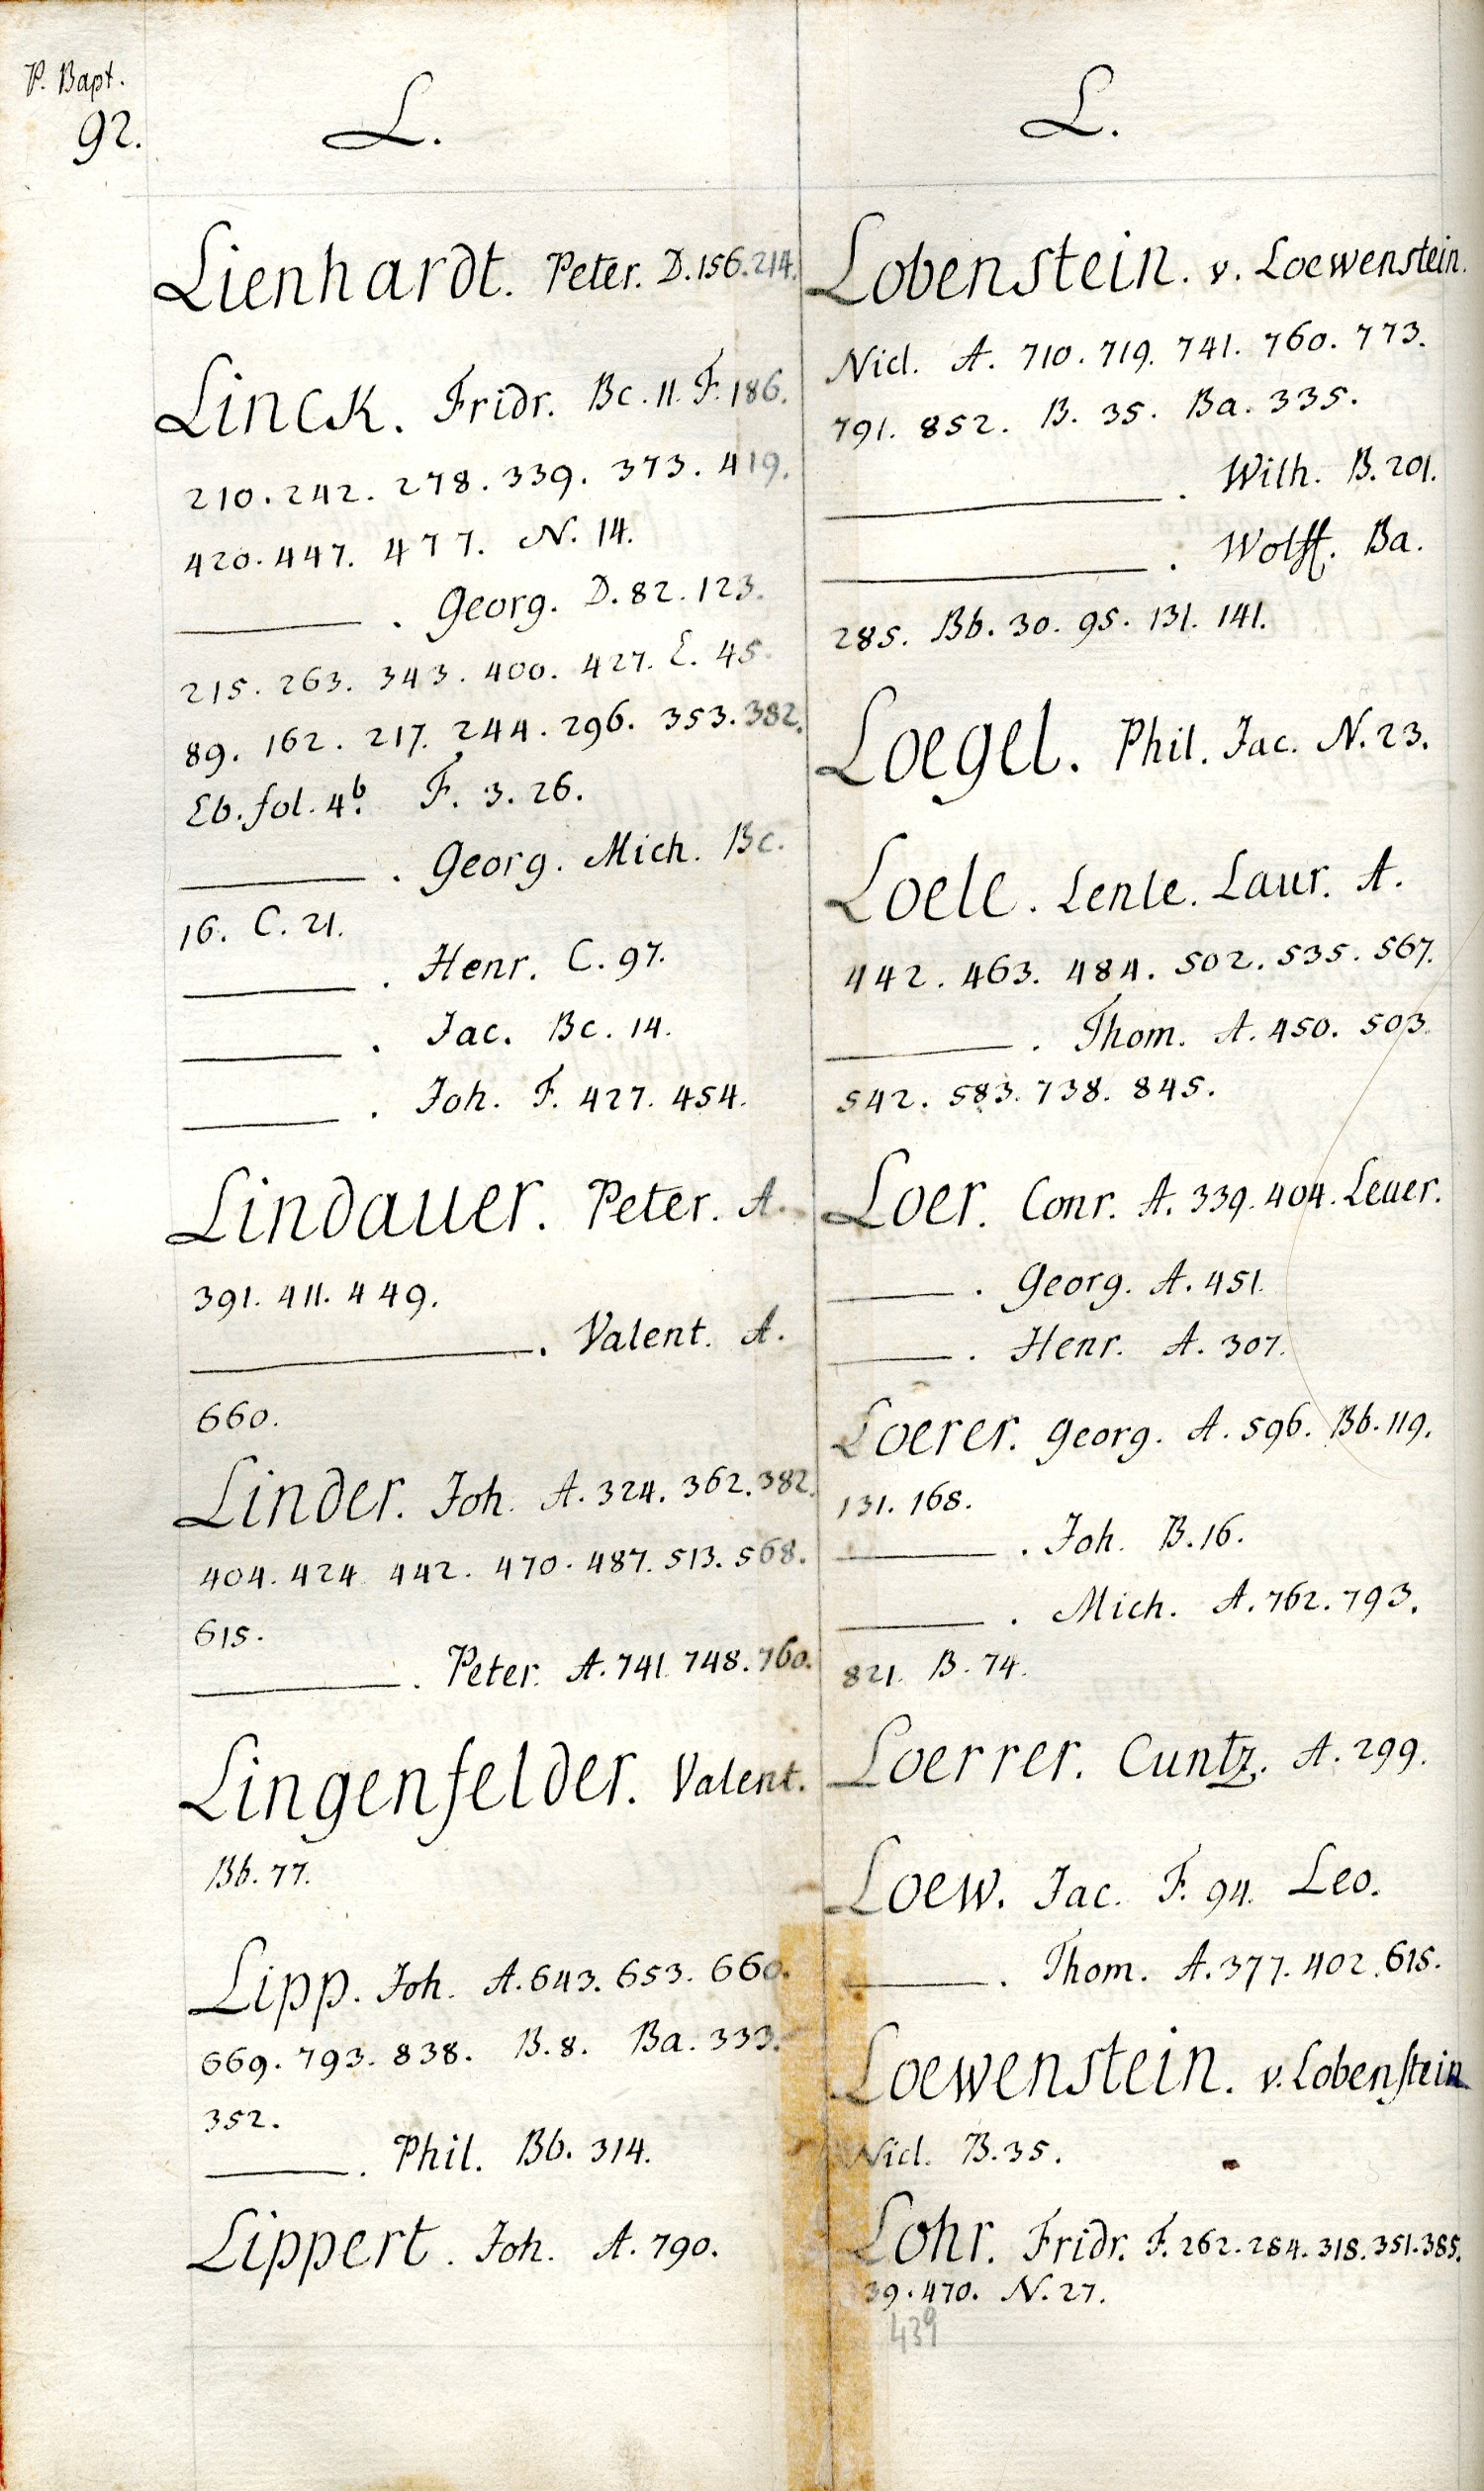 P. Bapt.
92.
L.
Lienhardt. Peter. D. 156. 214.
Linck. Fridr. Bc. 11. F. 186.
210. 242. 278. 339. 373. 419.
420. 447. 477. N. 14.
———. Georg. D. 82. 123.
215. 263. 343. 400. 427. E. 45.
89. 162. 217. 244. 296. 353. 382.
Eb. fol. 4b. F. 3. 26.
———. Georg. Mich. Bc.
16. C. 21.
———. Henr. C. 97.
———. Jac. Bc. 14.
———. Joh. F. 427. 454.
Lindauer. Peter. A.
391. 411. 449.
———. Valent. A.
660.
Linder. Joh. A. 324. 362. 382.
404. 424 442. 470. 487. 513. 568.
615.
———. Peter. A. 741. 748. 760.
Lingenfelder. Valent.
Bb. 77.
Lipp. Joh. A. 643. 653. 660.
669. 793. 838. B. 8. Ba. 333.
352.
———. Phil. Bb. 314.
Lippert. Joh. A. 790.
L.
Lobenstein. v. Loewenstein.
Nicl. A. 710. 719. 741. 760. 773.
791. 852. B. 35. Ba. 335.
———. Wilh. B. 201.
———. Wolff. Ba.
285. Bb. 30. 95. 131. 141.
Loegel. Phil. Jac. N. 23.
Loele. Lenle. Laur. A.
442. 463. 484. 502. 535. 567.
———. Thom. A. 450. 503.
542. 583. 738. 845.
Loer. Conr. A. 339. 404. Leuer.
———. Georg. A. 451.
———. Henr. A. 307.
Loerer. Georg. A. 596. Bb. 119.
131. 168.
———. Joh. B. 16.
———. Mich. A. 762. 793.
821. B. 74.
Loerrer. Cuntz. A. 299.
Loew. Jac. F. 94. Leo.
———. Thom. A. 377. 402. 615.
Loewenstein. v. Lobenstein
Nicl. B. 35.
Lohr. Fridr. F. 262. 284. 318. 351. 385.
39. 470. N. 27.
439